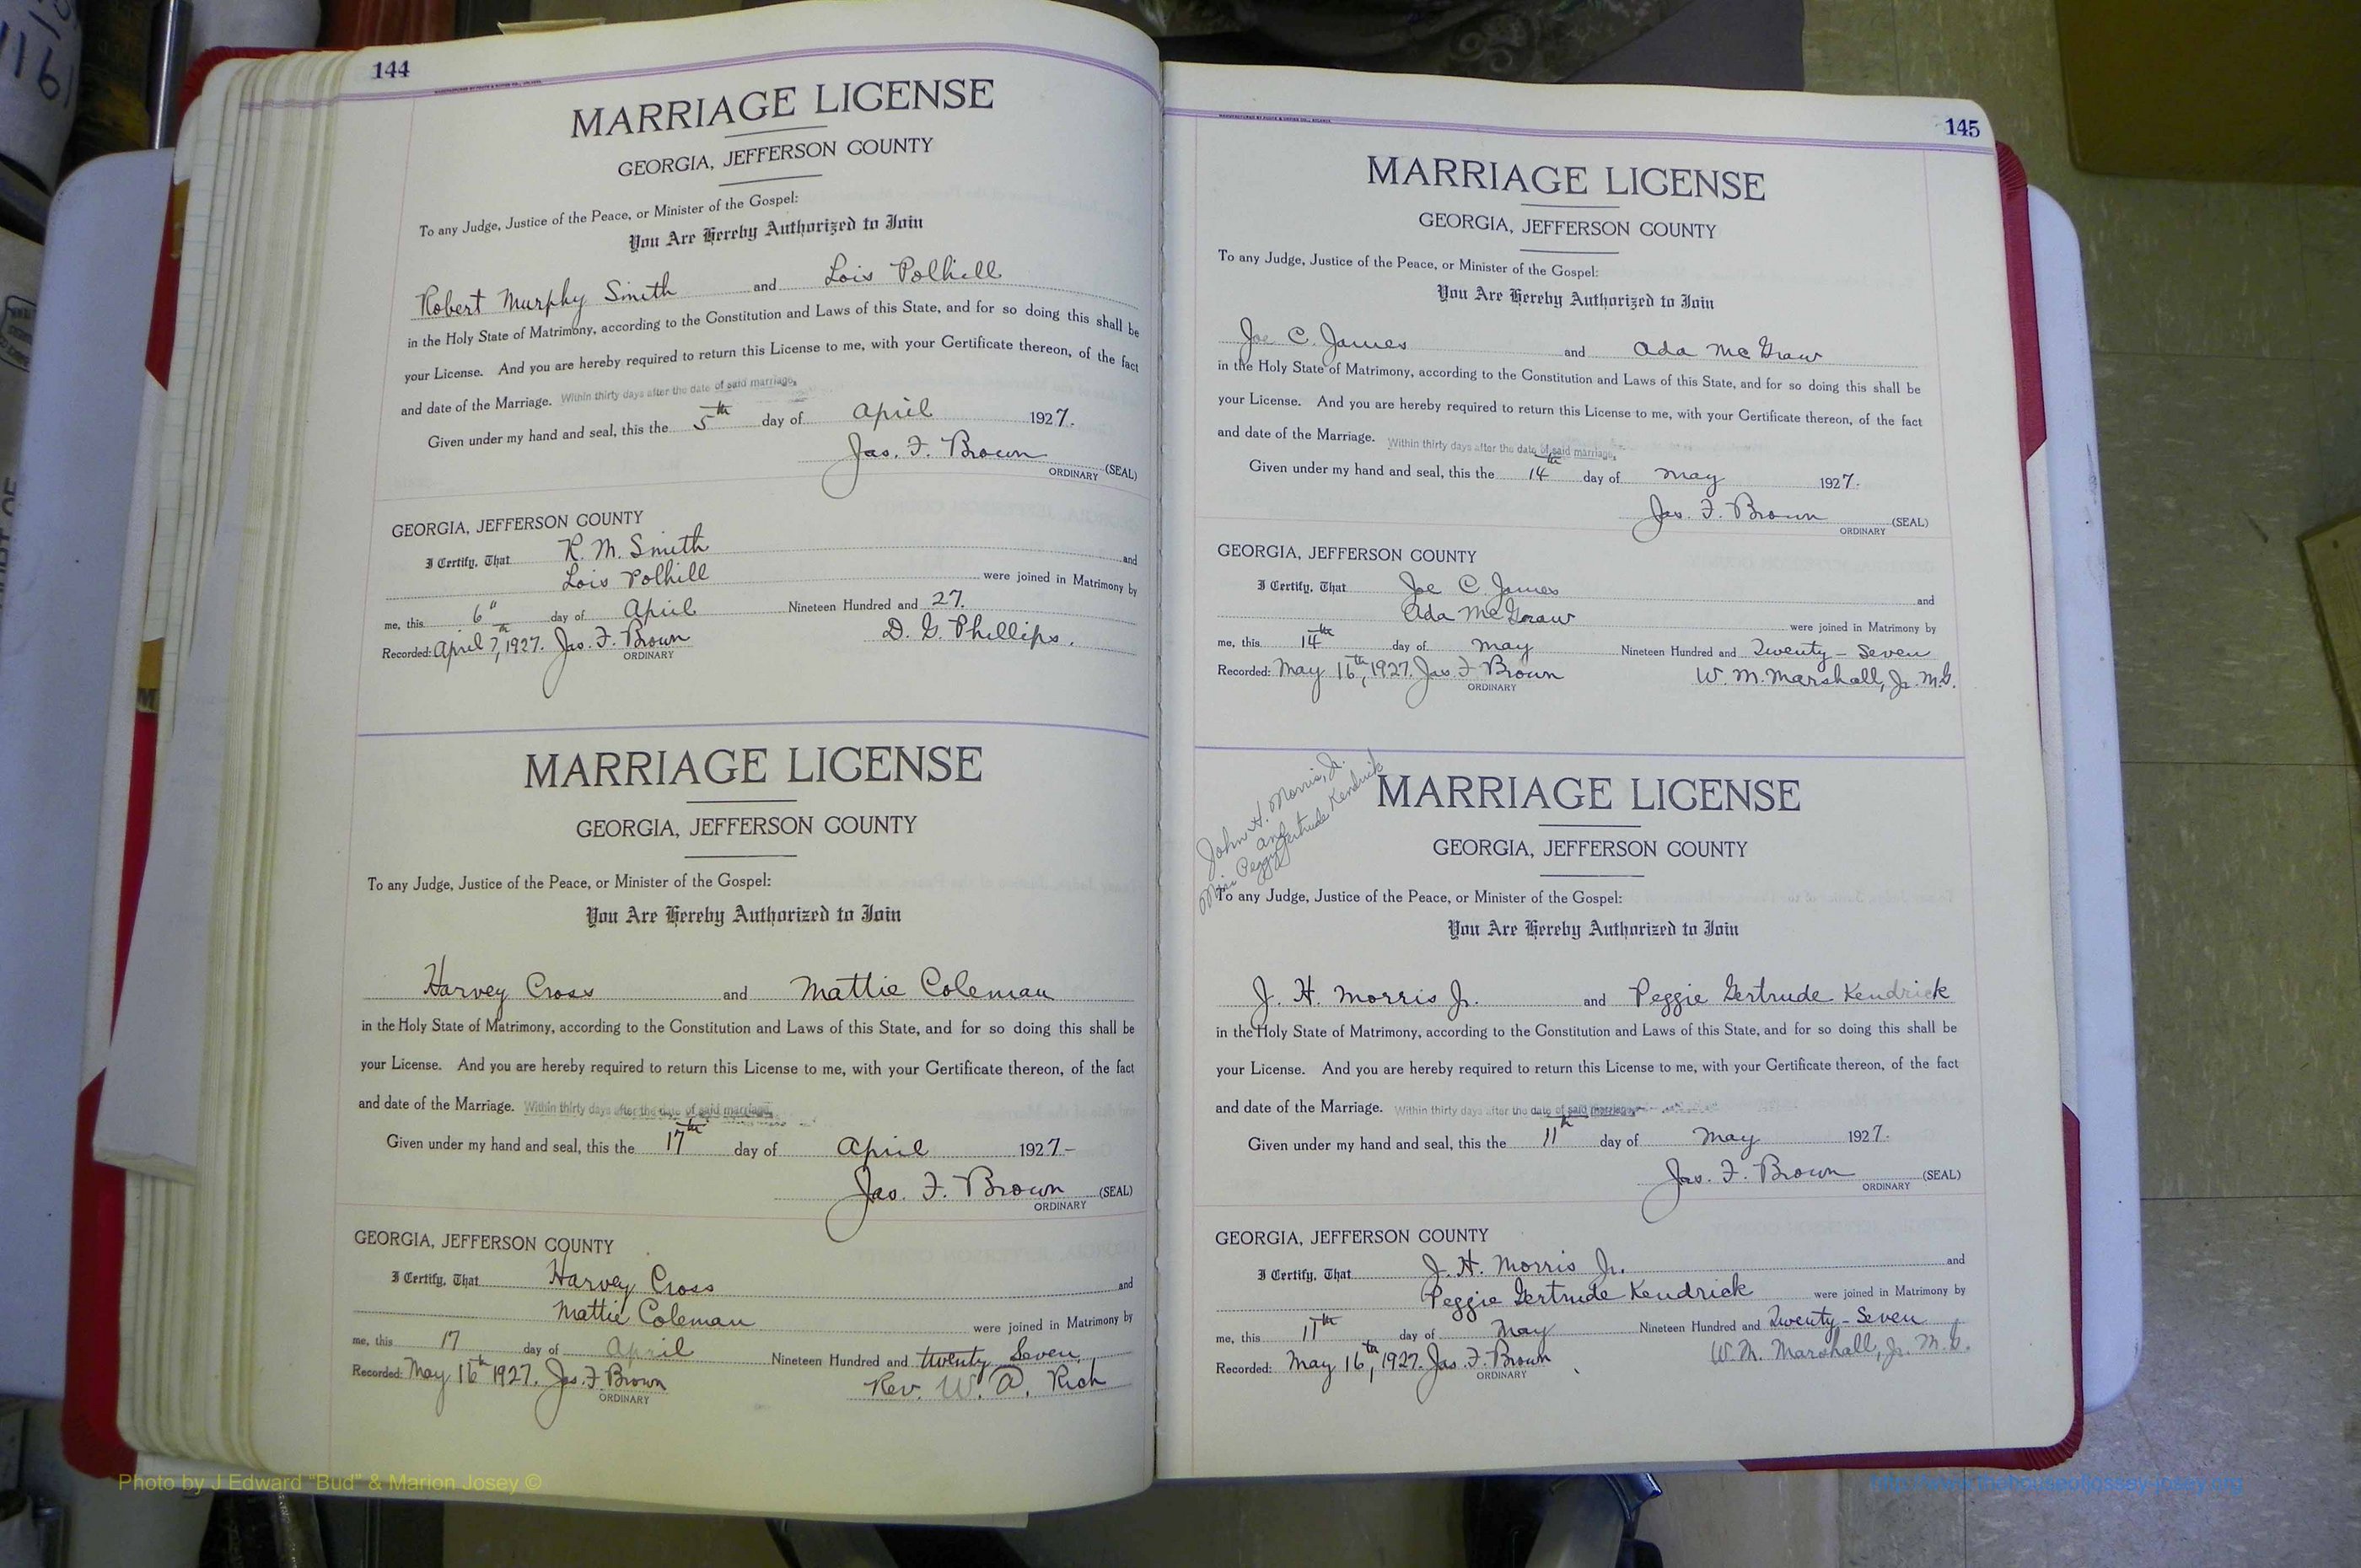 144
MARRIAGE LICENSE
GEORGIA, JEFFERSON COUNTY
To any Judge, Justice of the Peace, or Minister of the Gospel:
You Are Hereby Authorized to Join
Robert Murphy Smith and Lois Polhill
in the Holy State of Matrimony, according to the Constitution and Laws of this State, and for so doing this shall be
your License. And you are hereby required to return this License to me, with your Certificate thereon, of the fact
and date of the Marriage. Within thirty days after the date of said marriage,
Given under my hand and seal, this the 5th day of April 1927.
Jas. F. Brown (SEAL)
ORDINARY
GEORGIA, JEFFERSON COUNTY
I Certify, That R. M. Smith and
Lois Polhill were joined in Matrimony by
me, this 6" day of April Nineteen Hundred and 27.
Recorded: April 7th, 1927. Jas. F. Brown D. G. Phillips.
ORDINARY
MARRIAGE LICENSE
GEORGIA, JEFFERSON COUNTY
To any Judge, Justice of the Peace, or Minister of the Gospel:
You Are Hereby Authorized to Join
Harvey Cross and Mattie Coleman
in the Holy State of Matrimony, according to the Constitution and Laws of this State, and for so doing this shall be
your License. And you are hereby required to return this License to me, with your Certificate thereon, of the fact
and date of the Marriage. Within thirty days after the date of said marriage,
Given under my hand and seal, this the 17th day of April 1927-
Jas. F. Brown (SEAL)
ORDINARY
GEORGIA, JEFFERSON COUNTY
I Certify, That Harvey Cross and
Mattie Coleman were joined in Matrimony by
me, this 17 day of April Nineteen Hundred and twenty Seven
Recorded: May 16th 1927. Jas. F. Brown Rev. W. A. Rich
ORDINARY
145
MARRIAGE LICENSE
GEORGIA, JEFFERSON COUNTY
To any Judge, Justice of the Peace, or Minister of the Gospel:
You Are Hereby Authorized to Join
Joe C. James and Ada McGraw
in the Holy State of Matrimony, according to the Constitution and Laws of this State, and for so doing this shall be
your License. And you are hereby required to return this License to me, with your Certificate thereon, of the fact
and date of the Marriage. Within thirty days after the date of said marriage,
Given under my hand and seal, this the 14th day of May 1927.
Jas. F. Brown (SEAL)
ORDINARY
GEORGIA, JEFFERSON COUNTY
I Certify, That Joe C. James and
Ada McGraw were joined in Matrimony by
me, this 14th day of May Nineteen Hundred and Twenty-Seven
Recorded: May 16th, 1927. Jas. F. Brown W. M. Marshall, Jr. M.G.
ORDINARY
John H. Morris, Jr.
and
Miss Peggy Gertrude Kendrick
MARRIAGE LICENSE
GEORGIA, JEFFERSON COUNTY
To any Judge, Justice of the Peace, or Minister of the Gospel:
You Are Hereby Authorized to Join
J. H. Morris Jr. and Peggie Gertrude Kendrick
in the Holy State of Matrimony, according to the Constitution and Laws of this State, and for so doing this shall be
your License. And you are hereby required to return this License to me, with your Certificate thereon, of the fact
and date of the Marriage. Within thirty days after the date of said marriage,
Given under my hand and seal, this the 11th day of May 1927.
Jas. F. Brown (SEAL)
ORDINARY
GEORGIA, JEFFERSON COUNTY
I Certify, That J. H. Morris Jr. and
Peggie Gertrude Kendrick were joined in Matrimony by
me, this 11th day of May Nineteen Hundred and Twenty-Seven
Recorded: May 16th, 1927. Jas. F. Brown W. M. Marshall, Jr. M.G.
ORDINARY
Photo by J Edward "Bud" & Marion Josey ©
http://www.thehouseofjossey-josey.org